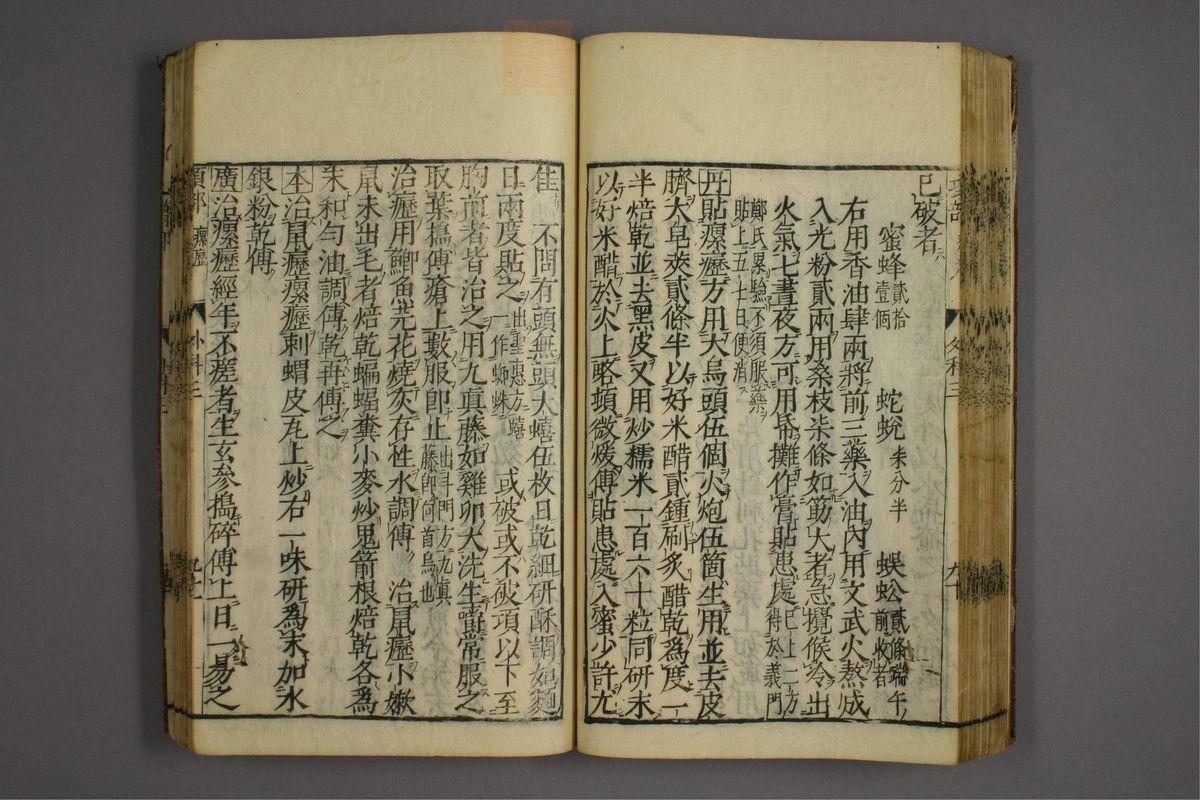 已破者
蜜蜂貳拾壹個 蛇蛻柒分半 蜈蚣貳條端午前收者
右用香油肆兩將前三藥入油內用文武火熬成
入光粉貳兩用桑枝柒條如筋大者急攪候冷出
火氣七晝夜方可用帋攤作膏貼患處已上二方得於義門
鄭氏累驗不須服藥貼上五七日便消
丹貼瘰癧方用大烏頭伍個火炮伍箇生用並去皮
臍大皂莢貳條半以好米醋貳鍾刷炙醋乾為度一
半焙乾並去黑皮又用炒糯米一百六十粒同研末
以好米醋於火上略頓微煖傅貼患處入蜜少許尤
佳 不問有頭無頭大蟢伍枚日乾細研酥調如麵
日兩度貼之出聖惠方蟢一作蜘蛛 或破或不破項以下至
胸前者皆治之用九真藤如雞卵大洗生嚼常服之
取葉搗傅瘡上數服卽止出斗門方九真藤卽何首烏也
治癧用鯽魚芫花燒灰存性水調傅 治鼠癧小嫰
鼠未出毛者焙乾蝙蝠糞小麥炒鬼箭根焙乾各為
末和勻油調傅乾再傅之
本治鼠癧瘰癧刺蝟皮瓦上炒右一味研為末加水
銀粉乾傅
廣治瘰癧經年不瘥者生玄參搗碎傅上日一易之
項部 瘰癧 外科三
外科三 九十